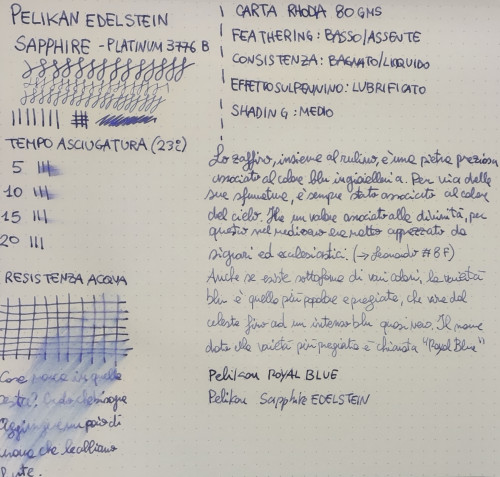 PELIKAN EDELSTEIN
SAPPHIRE - PLATINUM 3776 B
TEMPO ASCIUGATURA (23°)
5
10
15
20
RESISTENZA ACQUA
Cosa
Credo che bisogna
aggiungere un paio di
uova che le abbiamo
finite.
CARTA RHODIA 80 GMS
FEATHERING: BASSO/ASSENTE
CONSISTENZA: BAGNATO/LIQUIDO
EFFETTO SUL PENNINO: LUBRIFICATO
SHADING: MEDIO
Lo zaffiro, insieme al rubino, è una pietra preziosa
associato al colore blu in gioielleria. Per via delle
sue sfumature, è sempre stato associato al colore
del cielo. Ha un valore associato alle divinità, per
questo nel medioevo era molto apprezzato da
signori ed ecclesiastici. (→ Leonardo #8F)
Anche se esiste sottoforma di vari colori, la varietà
blu è quella più popolare e pregiata, che va dal
celeste fino ad un intenso blu quasi nero. Il nome
dato alla varietà più pregiata è chiamata "Royal Blue"
Pelikan ROYAL BLUE
Pelikan Sapphire EDELSTEIN